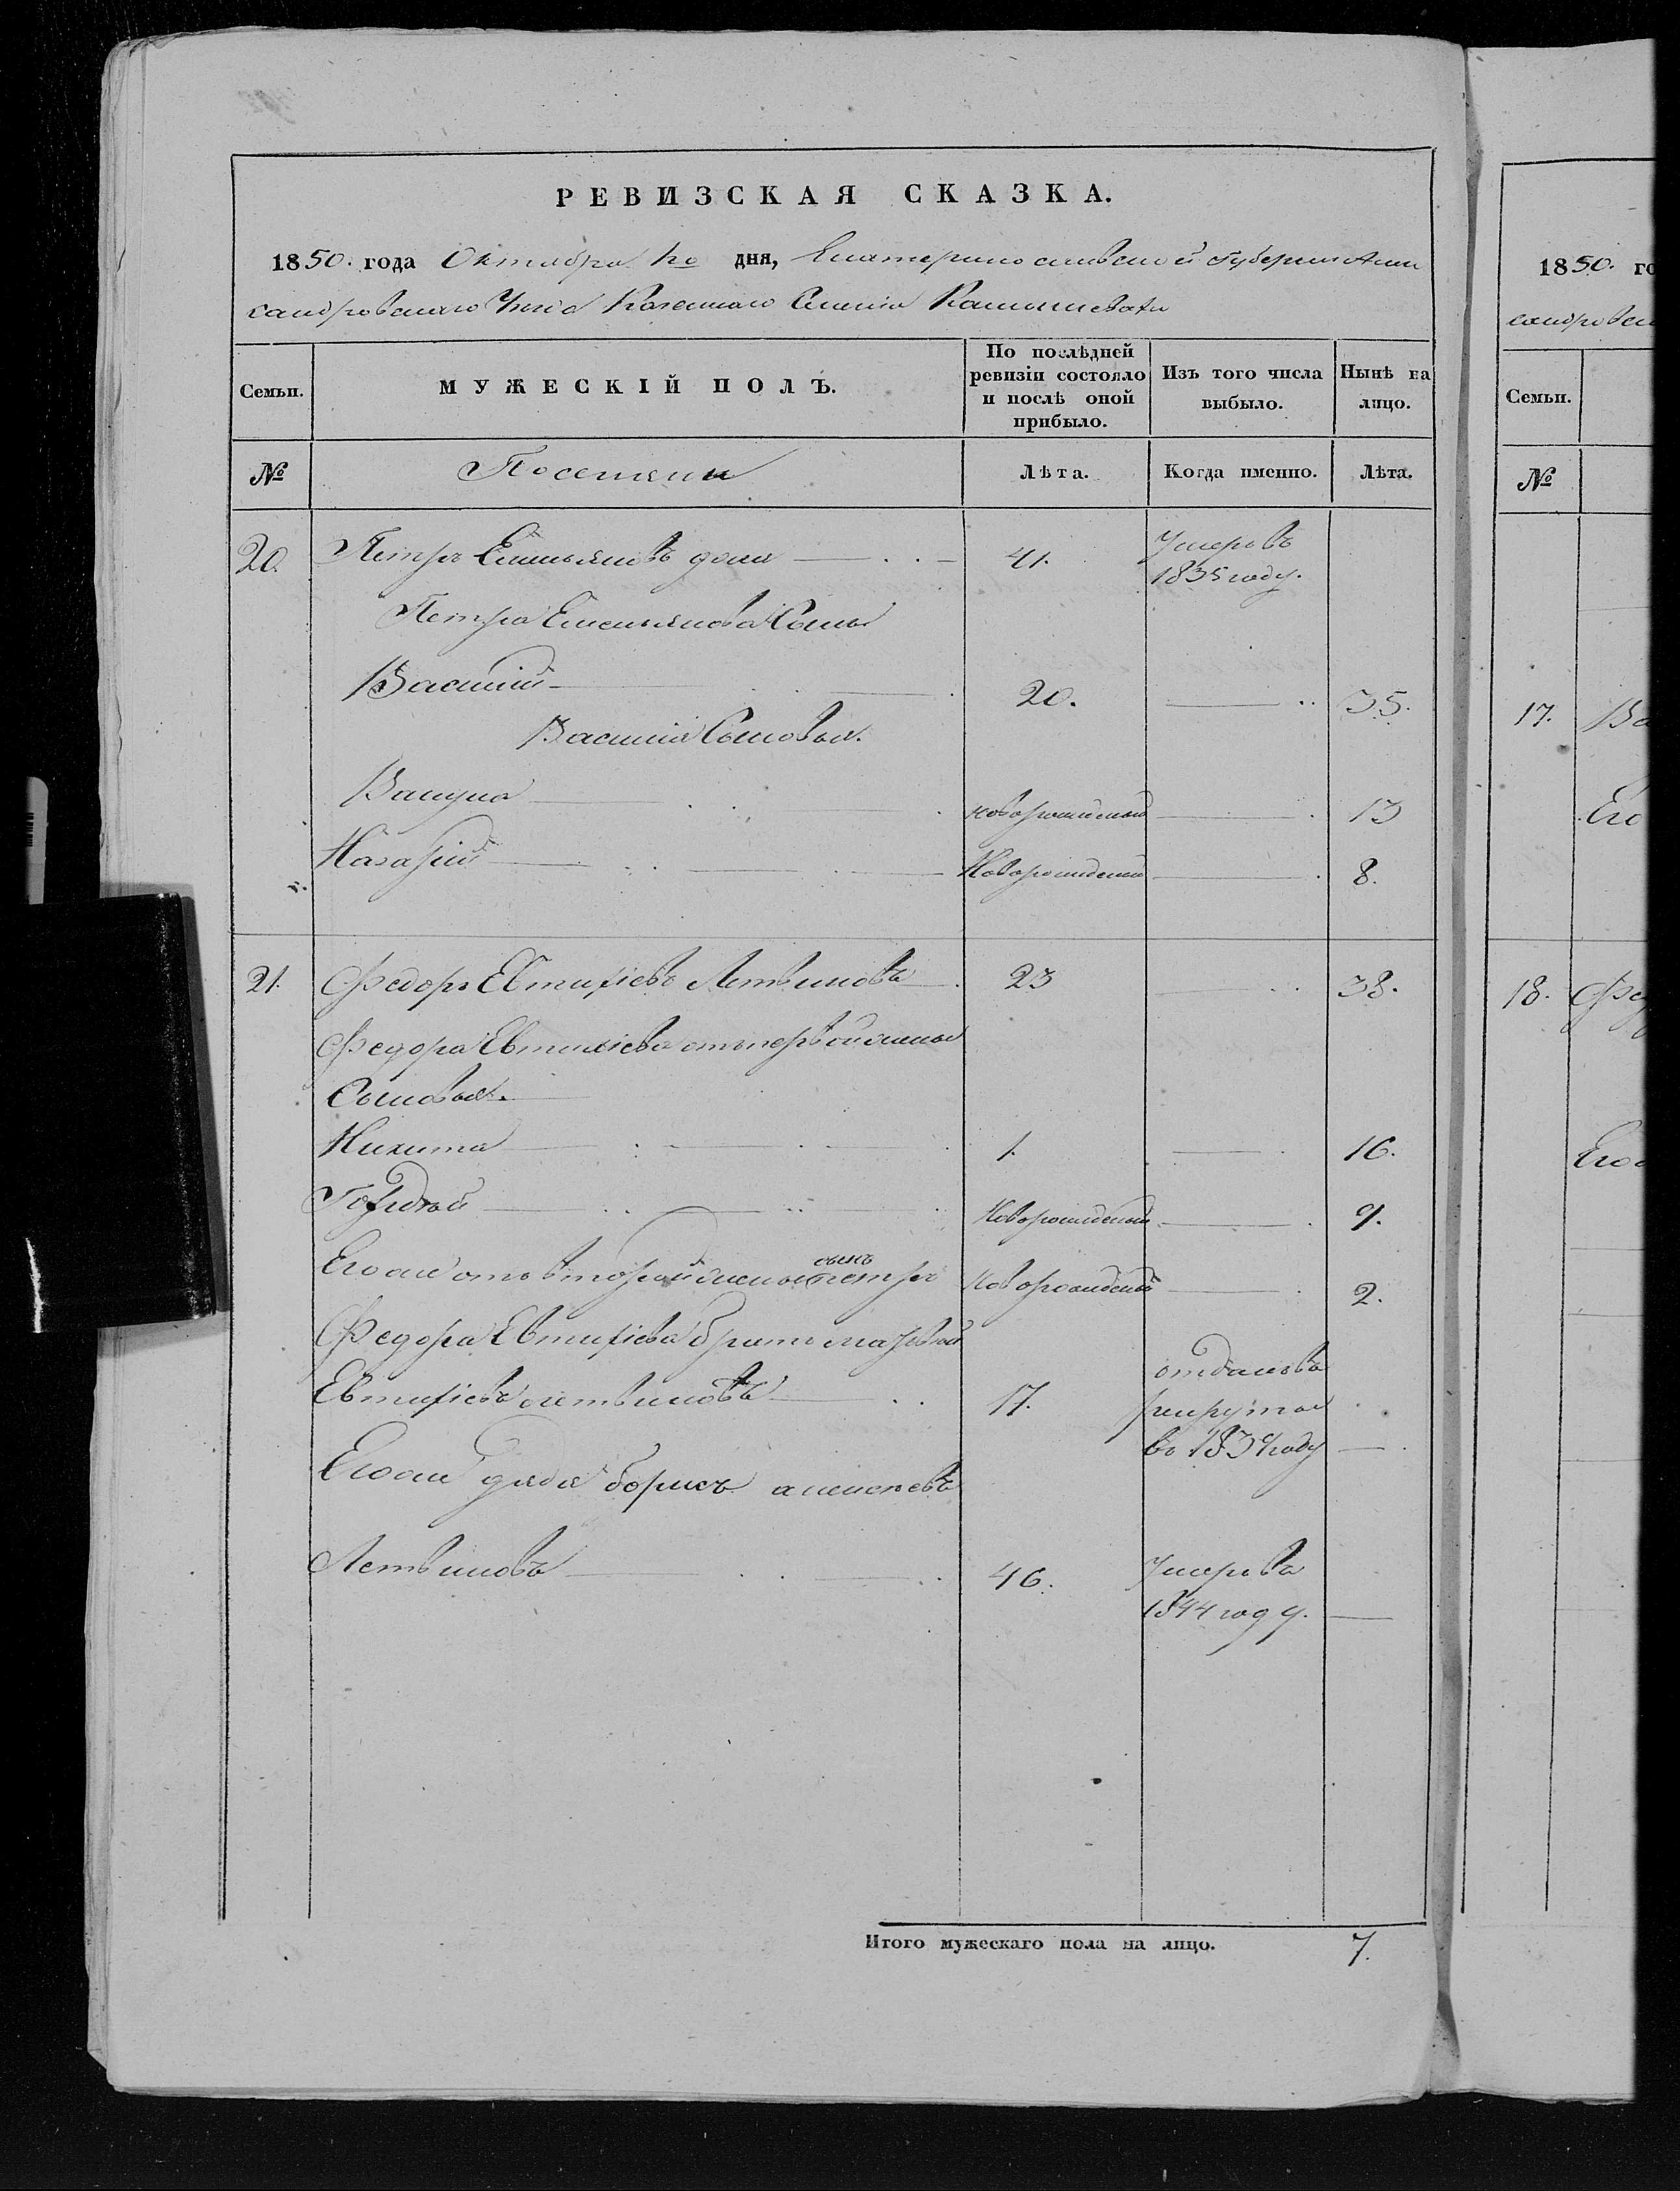 РЕВИЗСКАЯ СКАЗКА.
1850. года Октября 1го дня, Екатеринославской Губернии Алек
сандровскаго Уезда Казеннаго Селения Камышевахи
Семьи. МУЖЕСКІЙ ПОЛЪ. По послѣдней ревизіи состояло и послѣ оной прибыло. Изъ того числа выбыло. Нынѣ на лицо.
№ Поселяни Лѣта. Когда именно. Лѣта.
20. Петръ Емельяновъ 41. Умеръ въ
1835 году.
Петра Емельянова Сыны
Василий 20. 35.
Василия Сыновья.
Вакула новорожденный 13
Назарий Новорожденный 8.
21. Федоръ Евтихіевъ Летвиновъ 23 38.
Федора Евтихіева отъ первой жены
Сыновья.
Никита 1. 16.
Гордѣй Новорожденный 9.
сынъ
Его же отъ второй жены Петръ Новорожденный 2.
Федора Евтихіева братъ
отданъ въ
Евтихіевъ Летвиновъ 17. рекруты
въ 1839 году
Его же дядя Борисъ Алексеевъ
Летвиновъ 46. Умеръ въ
1844 году.
Итого мужескаго пола на лицо. 7.
1850. го
сандровск
Семьи.
№
17. Ва
Его
18. Фед
Его